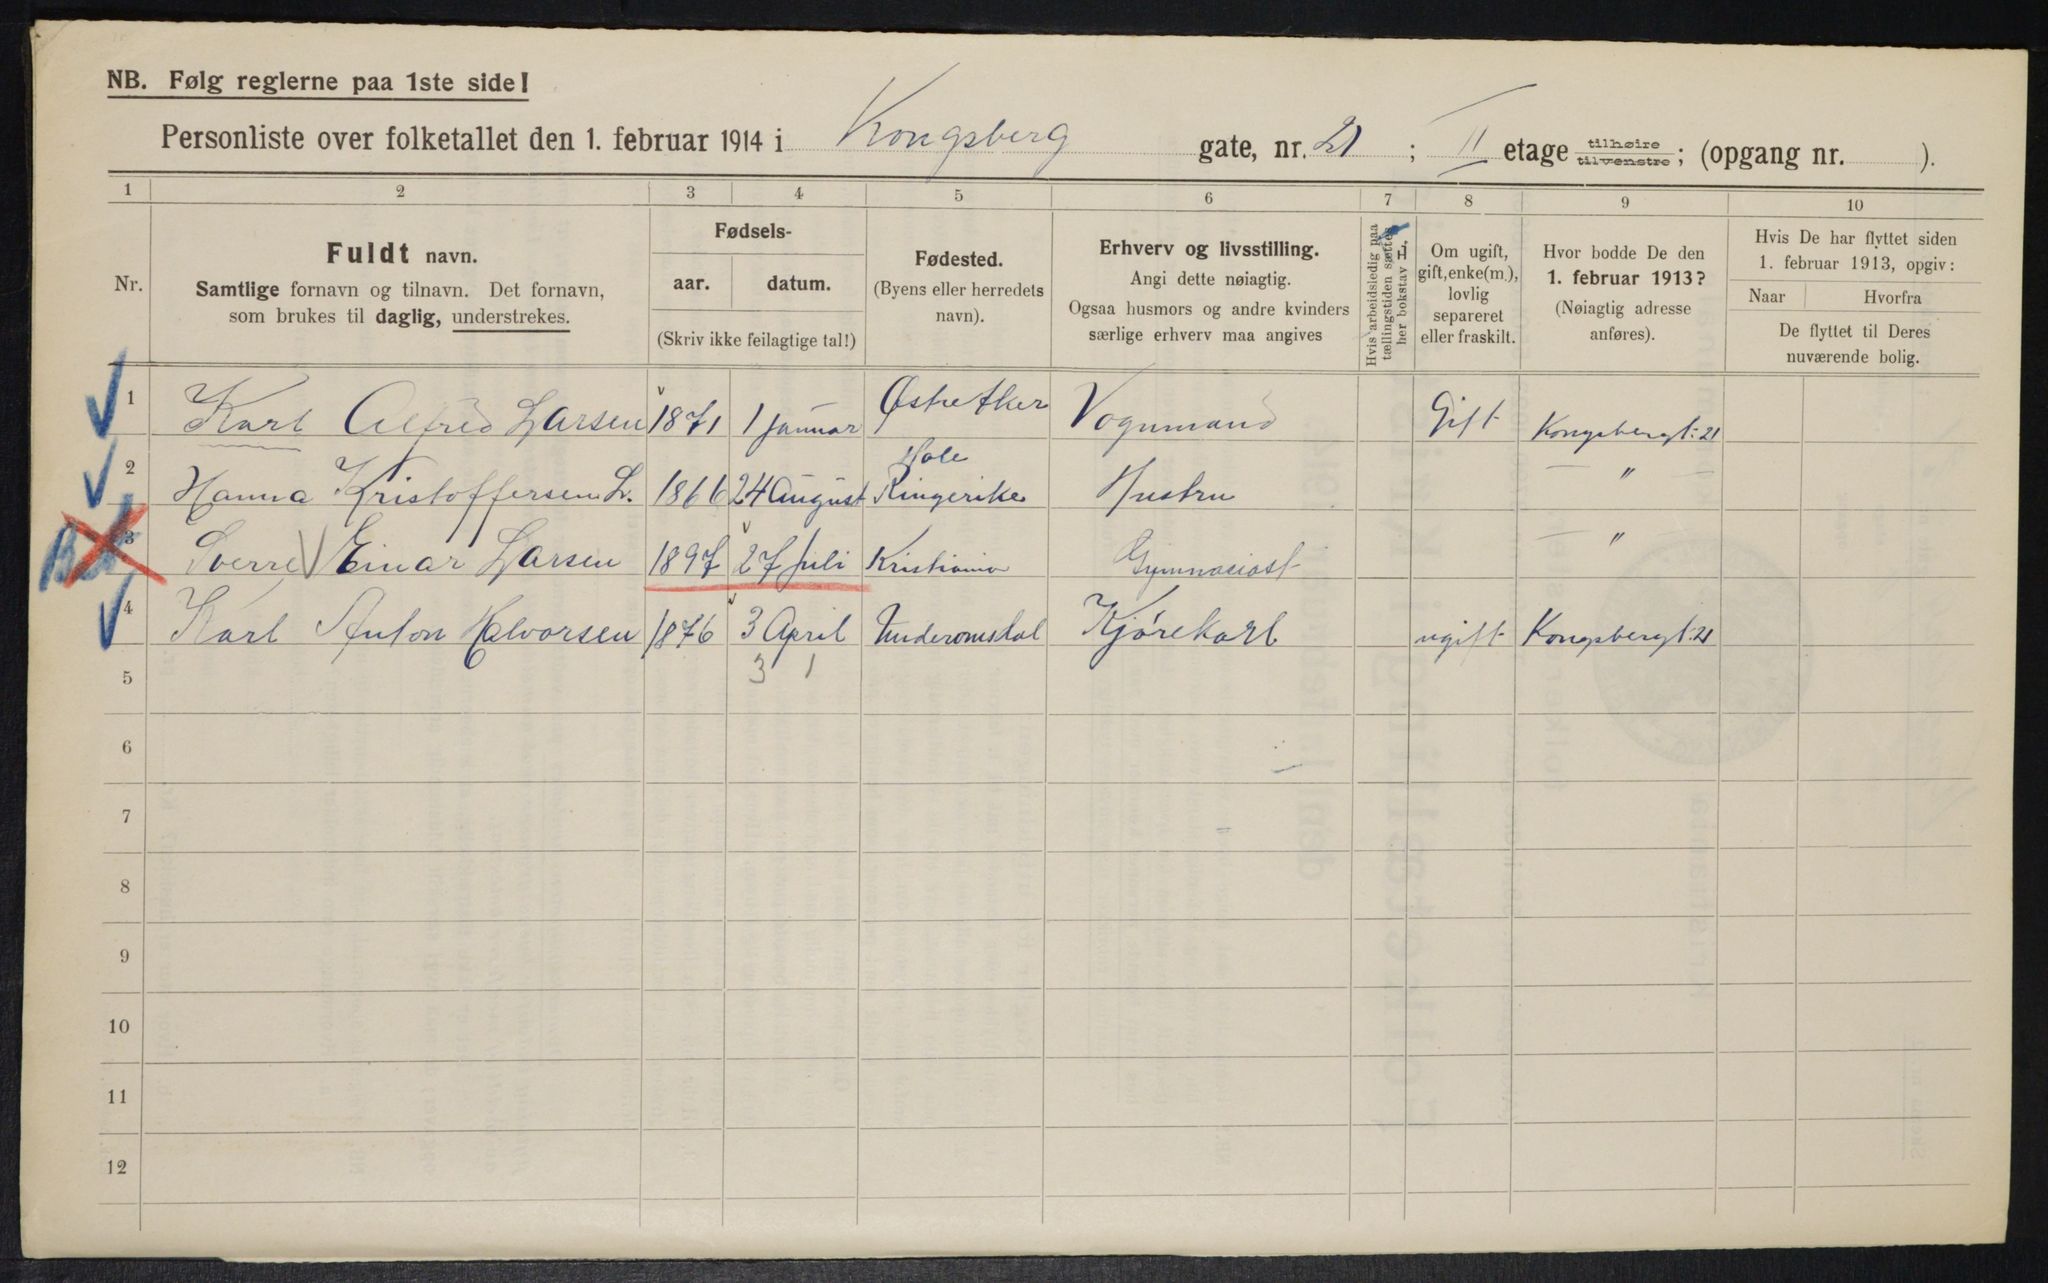 NB. Følg reglerne paa 1ste side!
Personliste over folketallet den 1. februar 1914 i Kongsberg gate, nr. 21; II etage tilhøire tilvenstre; (opgang nr. ).
1 2 3 4 5 6 7 8 9 10
Nr.
Fuldt navn.
Samtlige fornavn og tilnavn. Det fornavn,
som brukes til daglig, understrekes.
Fødsels-
aar. datum.
(Skriv ikke feilagtige tal!)
Fødested.
(Byens eller herredets
navn).
Erhverv og livsstilling.
Angi dette nøiagtig.
Ogsaa husmors og andre kvinders
særlige erhverv maa angives
Hvis arbeidsledig paa
tællingstiden sættes
her bokstav L.
Om ugift,
gift, enke(m.),
lovlig
separeret
eller fraskilt.
Hvor bodde De den
1. februar 1913?
(Nøiagtig adresse
anføres).
Hvis De har flyttet siden
1. februar 1913, opgiv:
Naar Hvorfra
De flyttet til Deres
nuværende bolig.
1 Karl Alfred Larsen 1871 1 januar Østre Aker Vognmand Gift Kongsbergt: 21
2 Hanna Kristoffersen L. 1866 24 August Hole Ringerike Hustru — " —
3 Sverre Einar Larsen 1897 27 juli Kristiania Gymnasiast — " —
4 Karl Anton Halvorsen 1876 3 April Kjørekarl ugift Kongsbergt: 21
5 3 1
6
7
8
9
10
11
12